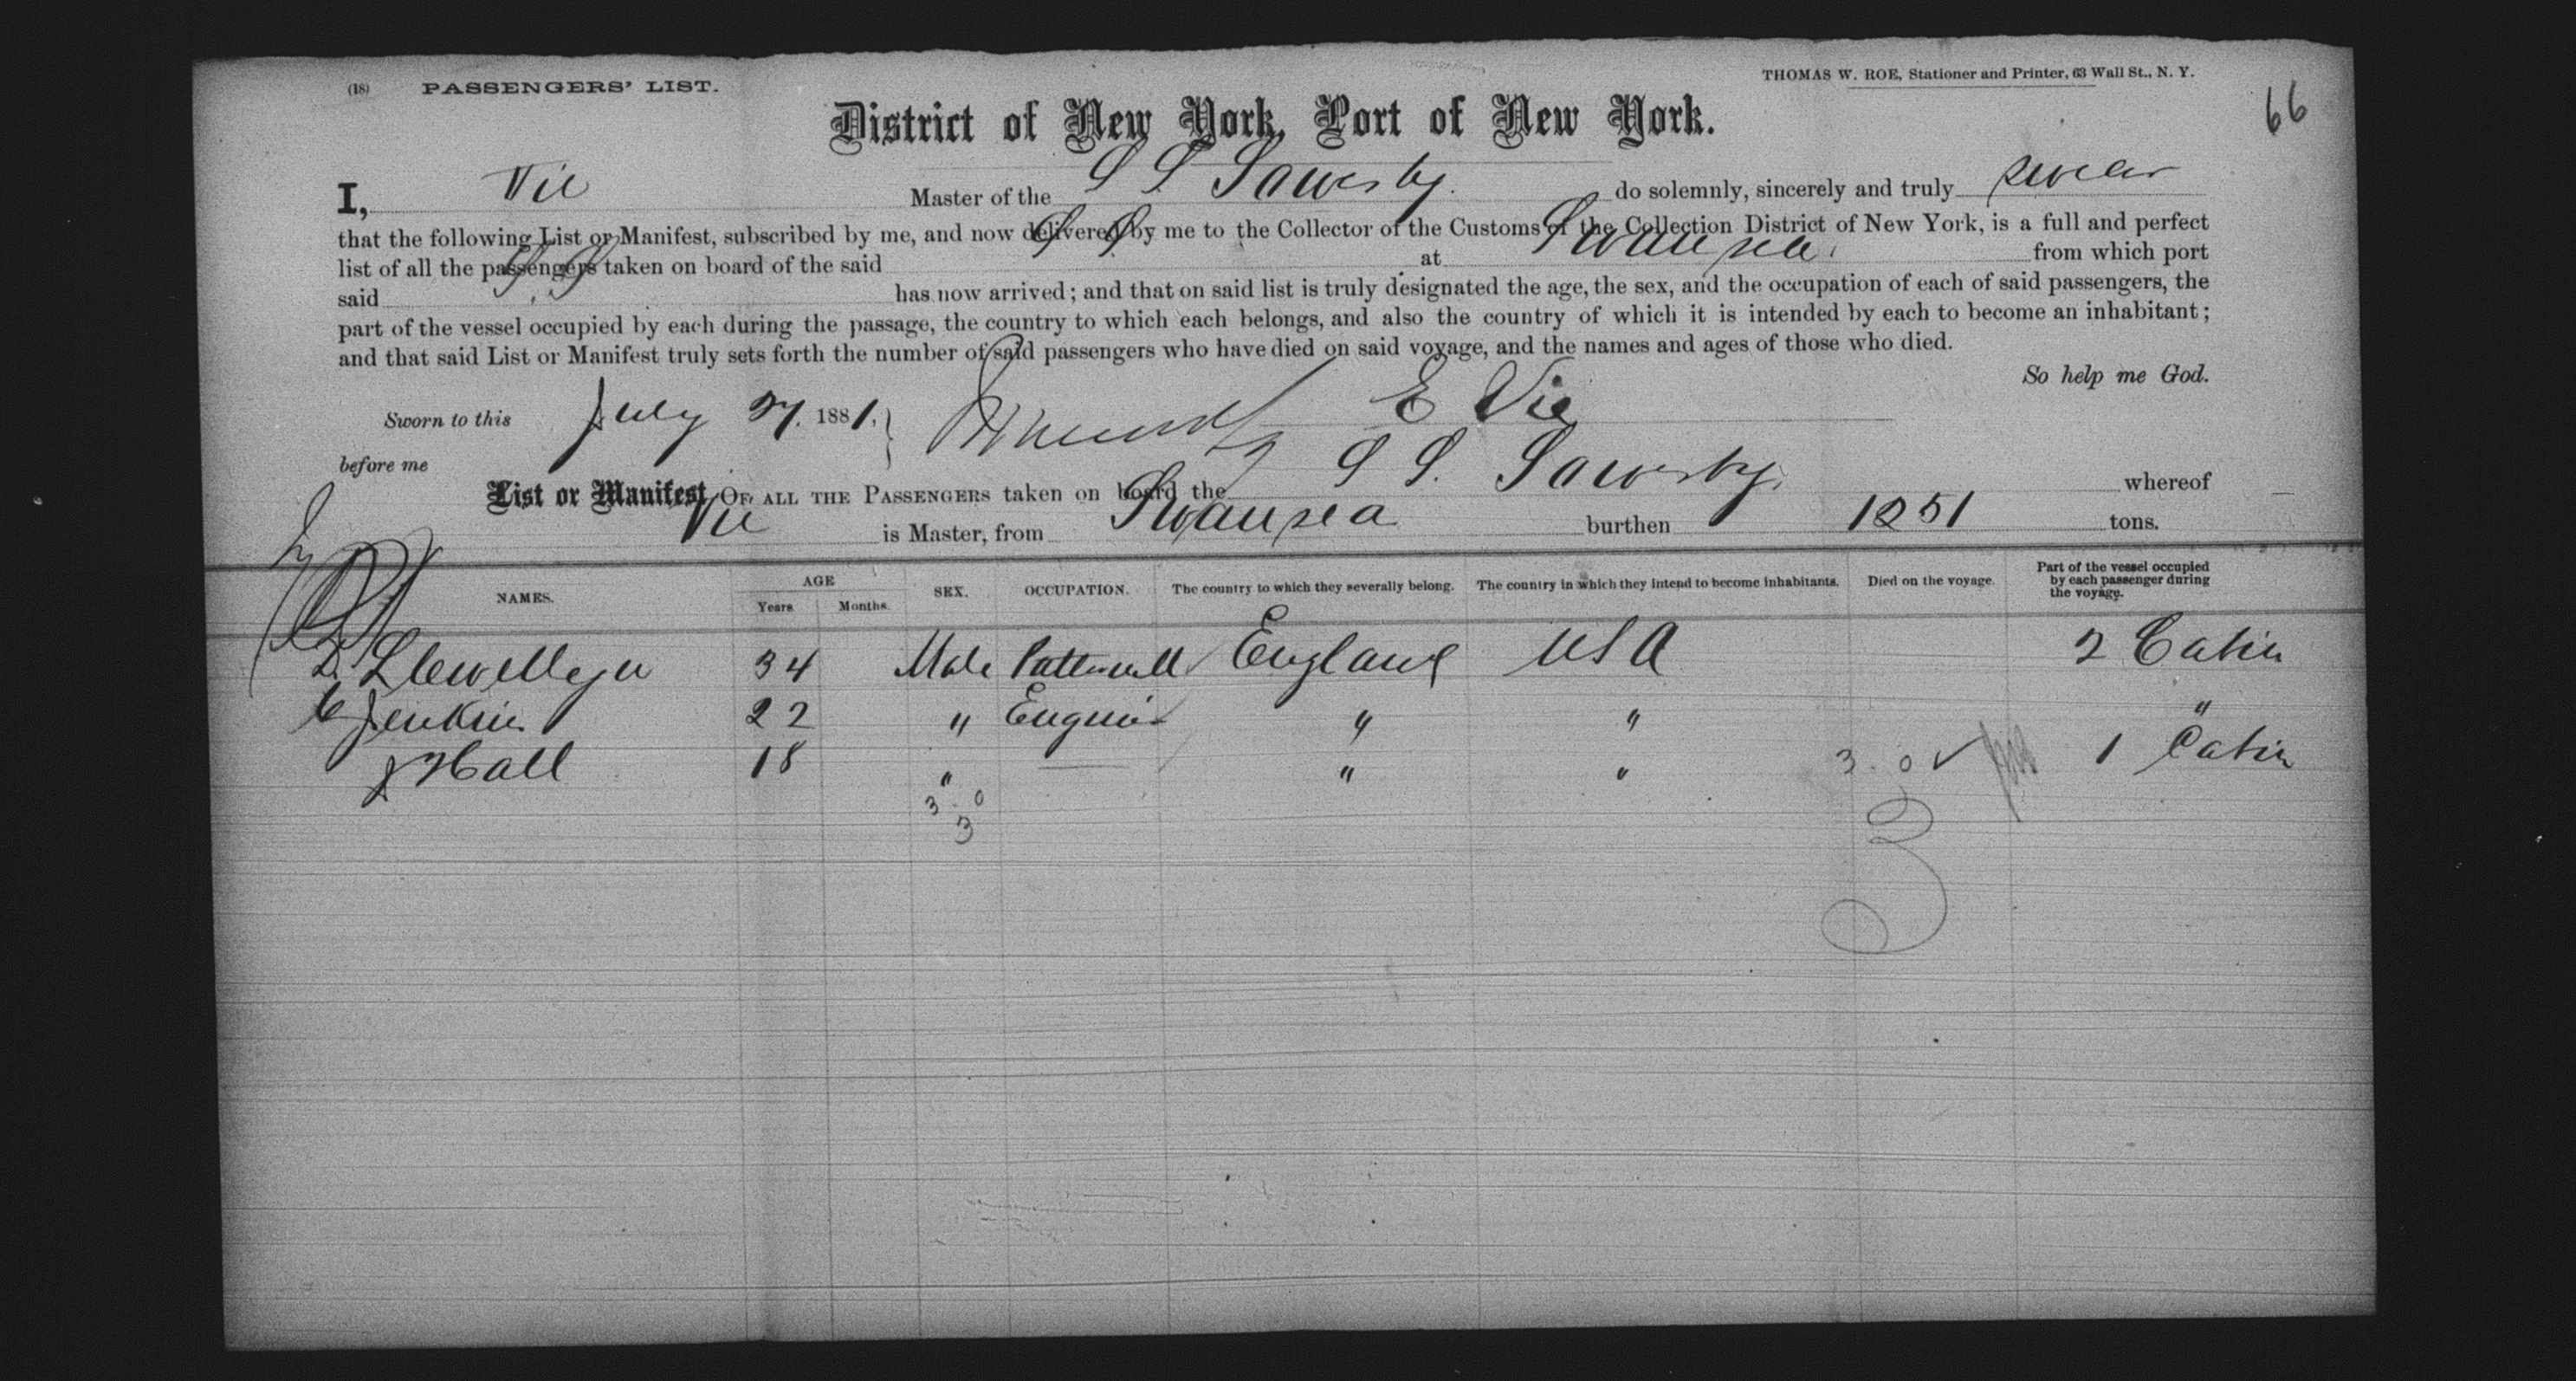 (18) PASSENGERS' LIST.
THOMAS W. ROE, Stationer and Printer, 63 Wall St., N. Y.
66
District of New York, Port of New York.
I, Vie Master of the S S Sowerby. do solemnly, sincerely and truly swear
that the following List or Manifest, subscribed by me, and now delivered by me to the Collector of the Customs of the Collection District of New York, is a full and perfect
list of all the passengers taken on board of the said S S at Swansea. from which port
said S S has now arrived; and that on said list is truly designated the age, the sex, and the occupation of each of said passengers, the
part of the vessel occupied by each during the passage, the country to which each belongs, and also the country of which it is intended by each to become an inhabitant;
and that said List or Manifest truly sets forth the number of said passengers who have died on said voyage, and the names and ages of those who died.
So help me God.
Sworn to this July 27. 1881. E Vie
before me
List or Manifest OF ALL THE PASSENGERS taken on board the S S. Sowerby. whereof
Vie is Master, from Swansea burthen 1851 tons.
NAMES. AGE Years. Months. SEX. OCCUPATION. The country to which they severally belong. The country in which they intend to become inhabitants. Died on the voyage. Part of the vessel occupied by each passenger during the voyage.
D. Llewellyn 34 Male England USA 2 Cabin
C Jenkins 22 " Engineer " " "
J Hall 18 " — " " 3 . 0 ✓ 1 Cabin
3 . 0
3
3